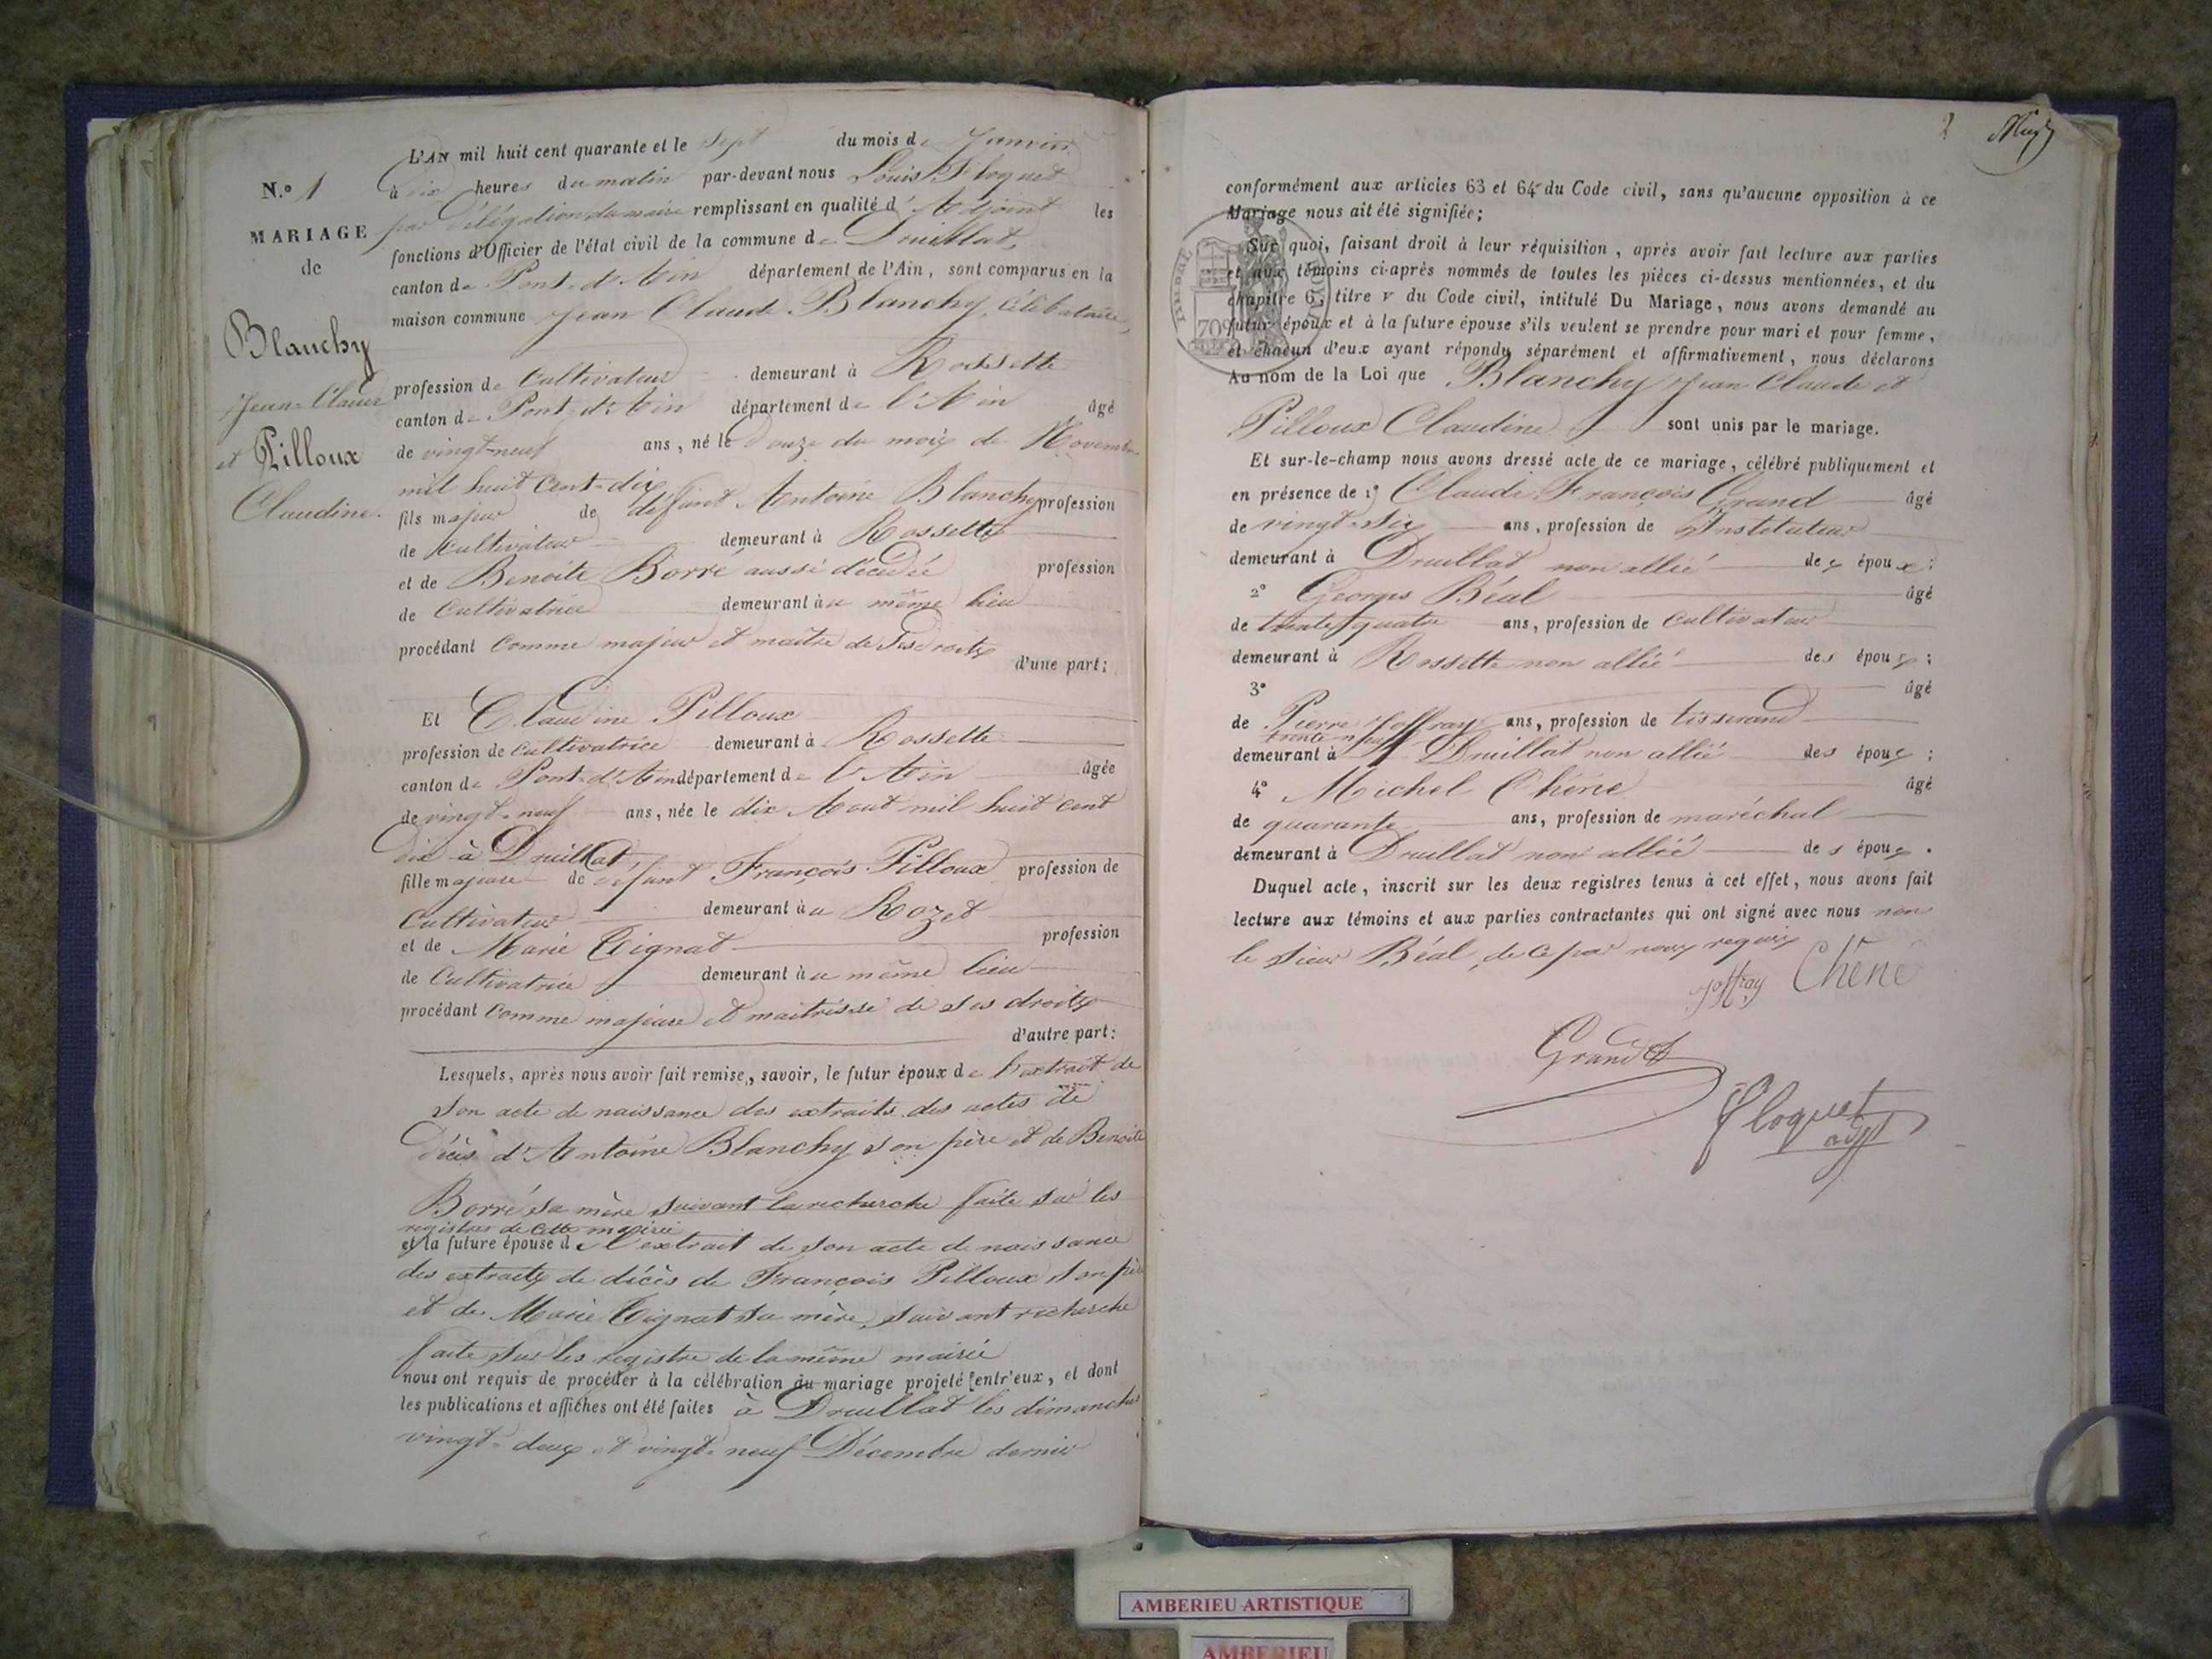 L'AN mil huit cent quarante et le sept du mois de Janvier
N.º 1
à dix heures du matin par-devant nous Louis Floquet
par délégation du maire remplissant en qualité d'Adjoint les
MARIAGE
fonctions d'Officier de l'état civil de la commune de Druillat,
de
canton de Pont-d'Ain département de l'Ain, sont comparus en la
maison commune Jean Claude Blanchy, Célibataire,
Blanchy
Jean-Claude
et Pilloux
Claudine.
profession de Cultivateur demeurant à Rossette
canton de Pont-d'Ain département de l'Ain âgé
de vingt-neuf ans, né le douze du mois de Novembre
mil huit Cent-dix
fils majeur de défunt Antoine Blanchy profession
de Cultivateur demeurant à Rossette
et de Benoite Borré aussi décédée profession
de Cultivatrice demeurant à au même lieu
procédant Comme majeur et maître de ses droits
d'une part;
Et Claudine Pilloux
profession de Cultivatrice demeurant à Rossette
canton de Pont-d'Ain département de l'Ain âgée
de vingt-neuf ans, née le dix Aout mil huit cent
dix à Druillat,
fille majeure de défunt François Pilloux profession de
Cultivateur demeurant à au Rozet
et de Marie Tignat profession
de Cultivatrice demeurant à au même lieu
procédant Comme majeure et maitresse de ses droits
d'autre part:
Lesquels, après nous avoir fait remise, savoir, le futur époux de l'extrait de
son acte de naissance des extraits des actes de
décès d'Antoine Blanchy son père et de Benoite
Borré sa mère suivant la recherche faite sur les
registres de cette mairie
et la future épouse de l'extrait de son acte de naissance
des extraits de décès de François Pilloux son père
et de Marie Tignat sa mère, suivant recherche
faite sur les registre de la même mairie
nous ont requis de procéder à la célébration du mariage projeté entr'eux, et dont
les publications et affiches ont été faites à Druillat les dimanches
vingt-deux et vingt-neuf Décembre dernier
2
conformément aux articles 63 et 64 du Code civil, sans qu'aucune opposition à ce
Mariage nous ait été signifiée;
Sur quoi, faisant droit à leur réquisition, après avoir fait lecture aux parties
et aux témoins ci-après nommés de toutes les pièces ci-dessus mentionnées, et du
chapitre 6, titre v du Code civil, intitulé Du Mariage, nous avons demandé au
futur époux et à la future épouse s'ils veulent se prendre pour mari et pour femme,
et chacun d'eux ayant répondu séparément et affirmativement, nous déclarons
Au nom de la Loi que Blanchy Jean Claude et
Pilloux Claudine sont unis par le mariage.
Et sur-le-champ nous avons dressé acte de ce mariage, célébré publiquement et
en présence de 1º Claude François Grand âgé
de vingt-six ans, profession de Instituteur
demeurant à Druillat non allié des époux;
2º Georges Béal âgé
de trente quatre ans, profession de Cultivateur
demeurant à Rossette non allié des époux;
3º âgé
de Pierre Joffray ans, profession de tisserand
trente neuf
demeurant à Druillat non allié des époux;
4º Michel Chêne âgé
de quarante ans, profession de maréchal
demeurant à Druillat non allié des époux.
Duquel acte, inscrit sur les deux registres tenus à cet effet, nous avons fait
lecture aux témoins et aux parties contractantes qui ont signé avec nous non
le sieur Béal, de ce par nous requis
Joffray Chêne
Grand
Floquet
adjt
70
AMBERIEU ARTISTIQUE
AMBERIEU